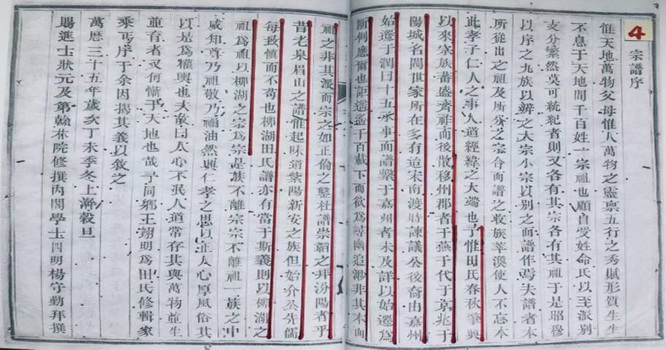 4 宗譜序
惟天地萬物父母惟人萬物之靈稟五行之秀賦形質生生
不息于天地間千百姓一宗祖也顧自受姓命氏以至派別
支分繁然莫可統犯者則又各有其宗各有其祖于是昭穆
以序之九族以辨之大宗小宗以別之而譜作焉夫譜者本
所從出之祖及所分之宗合而譜之收族萃渙使人不忘本
此孝子仁人之事人道經緯之大端也予惟田氏春秋肇興
以來家族蕃盛齊祖而後散移州郡者于燕于代于京兆于
陽城名閥世家所在多有迨宋南渡時諫議公後裔由嘉州
始遷于潤曰十五承事而譜繫于嘉州者未及詳以始遷為
斷制應爾也詎遥遥千百載下而欲為尋幽追渺非其本而
祖之非其派而宗之如正倫之鑿杜譜崇韜之拜汾陽者乎
昔老泉眉山之譜惟起味道紫陽新安之族但始介公先儒
每致慎而不苟也柳湖田氏譜亦有當于斯義則以柳湖之
祖為祖以柳湖之宗為宗是族不離宗宗不離祖一族之中
咸知尊乃祖敬乃祖油然興仁孝之思以正人心厚風俗其
以是為權輿也夫敢曰人心不泯人道常存其與萬物並生
並育者又何慚于天地也哉予同鄉王翊明為田氏修輯家
乘丐序于余因揭其義以敘之
萬曆三十五年歲次丁未季冬上澣穀旦
賜進士狀元及第翰林院修撰內閣學士四明楊守勤拜撰